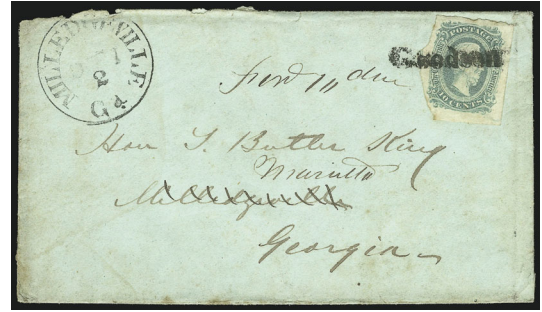 MILLEDGEVILLE
2
Ga
POSTAGE
TEN CENTS
Ford 10 due
Hon T. Butler King
Marietta
Milledgeville
Georgia